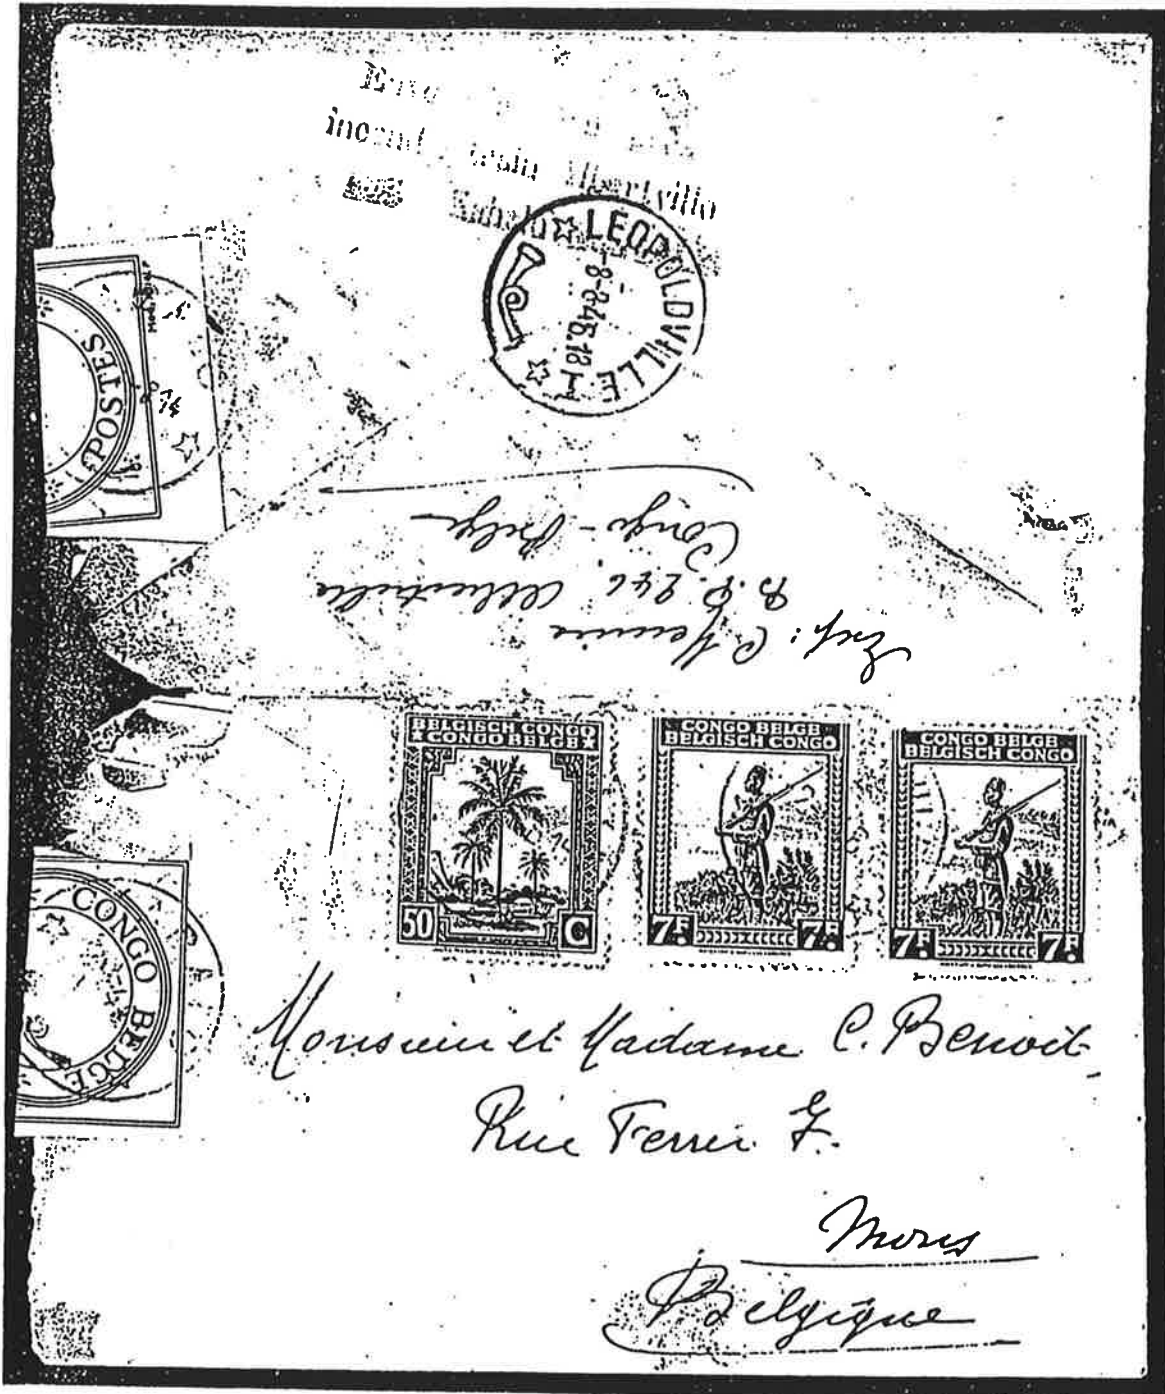 incend train Albertville
LÉOPOLDVILLE I
-8-3-45.18
POSTES
Exp: C.
B.P. 246. Albertville
Congo-Belge
BELGISCH CONGO
CONGO BELGE
50 C
CONGO BELGE
BELGISCH CONGO
7F. 7F.
CONGO BELGE
BELGISCH CONGO
7F. 7F.
CONGO BELGE
Monsieur et Madame C. Benoit
Rue Ferrer 7.
Mons
Belgique